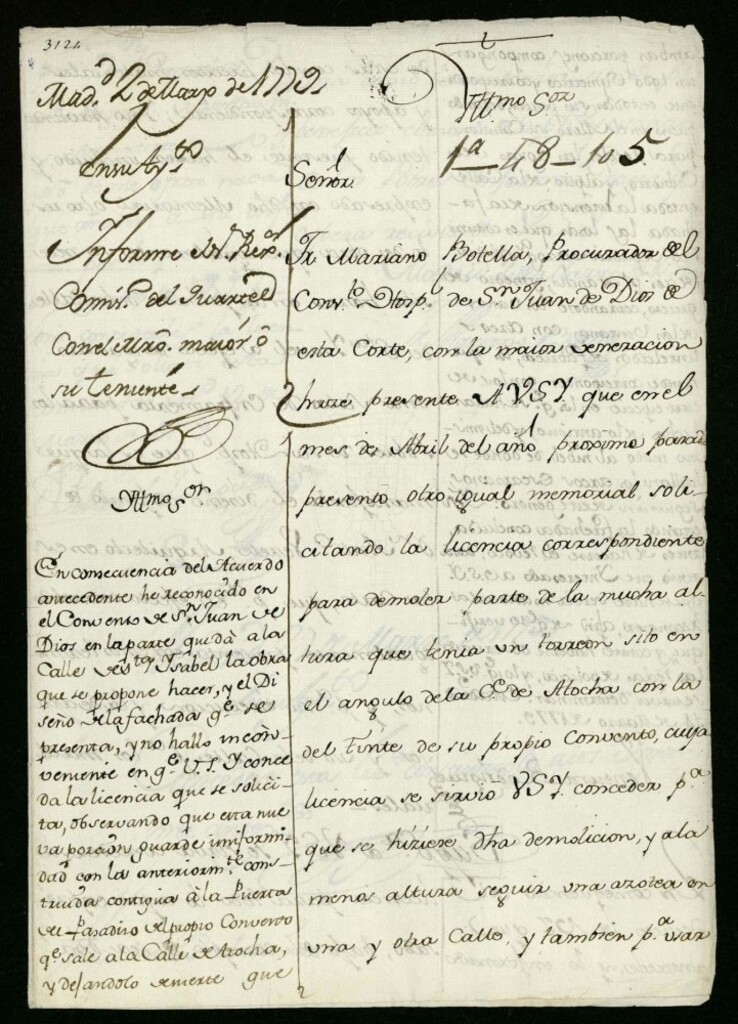 3124
Mad.d 2 de Marzo de 1779.
En su Ay.to
Informe el S.r Rex.or
Comis.o del Quartel
Con el Mro. maior ó
su teniente
Yttmo S.or
En consecuencia del Acuerdo
antecedente he reconocido en
el Convento de S.n Juan de
Dios en la parte que dà a la
Calle de S.ta Ysabel la obra
que se propone hacer, y el Di
seño de la fachada q.e se
presenta, y no hallo incon-
veniente en q.e V.S.Y conce
da la licencia que se solici-
ta, observando que esta nue
va porcion guarde uniformi-
dad con la anteriorm.te cons-
truida contigua à la Puerta
del Pasadizo del propio Convento
q.e sale a la Calle de Atocha,
y dejandolo de suerte que
Yttmo S.or
1a - 48 - 105
Señor.
Fr. Mariano Botella, Procurador del
Conv.to Ospl. de S.n Juan de Dios de
esta Corte, con la maior veneracion
hace presente A VSY. que en el
mes de Abril del año proximo pasado
presentó otro igual memorial soli-
citando la licencia correspondiente
para demoler parte de la mucha al-
tura que tenia un torreon sito en
el angulo de la C.e de Atocha con la
del tinte de su propio Convento, cuya
licencia se sirvió VSY. conceder p.a
que se hiziese dha demolicion, y a la
menos altura seguir una azotea en
una y otra Calle, y tambien p.a usar